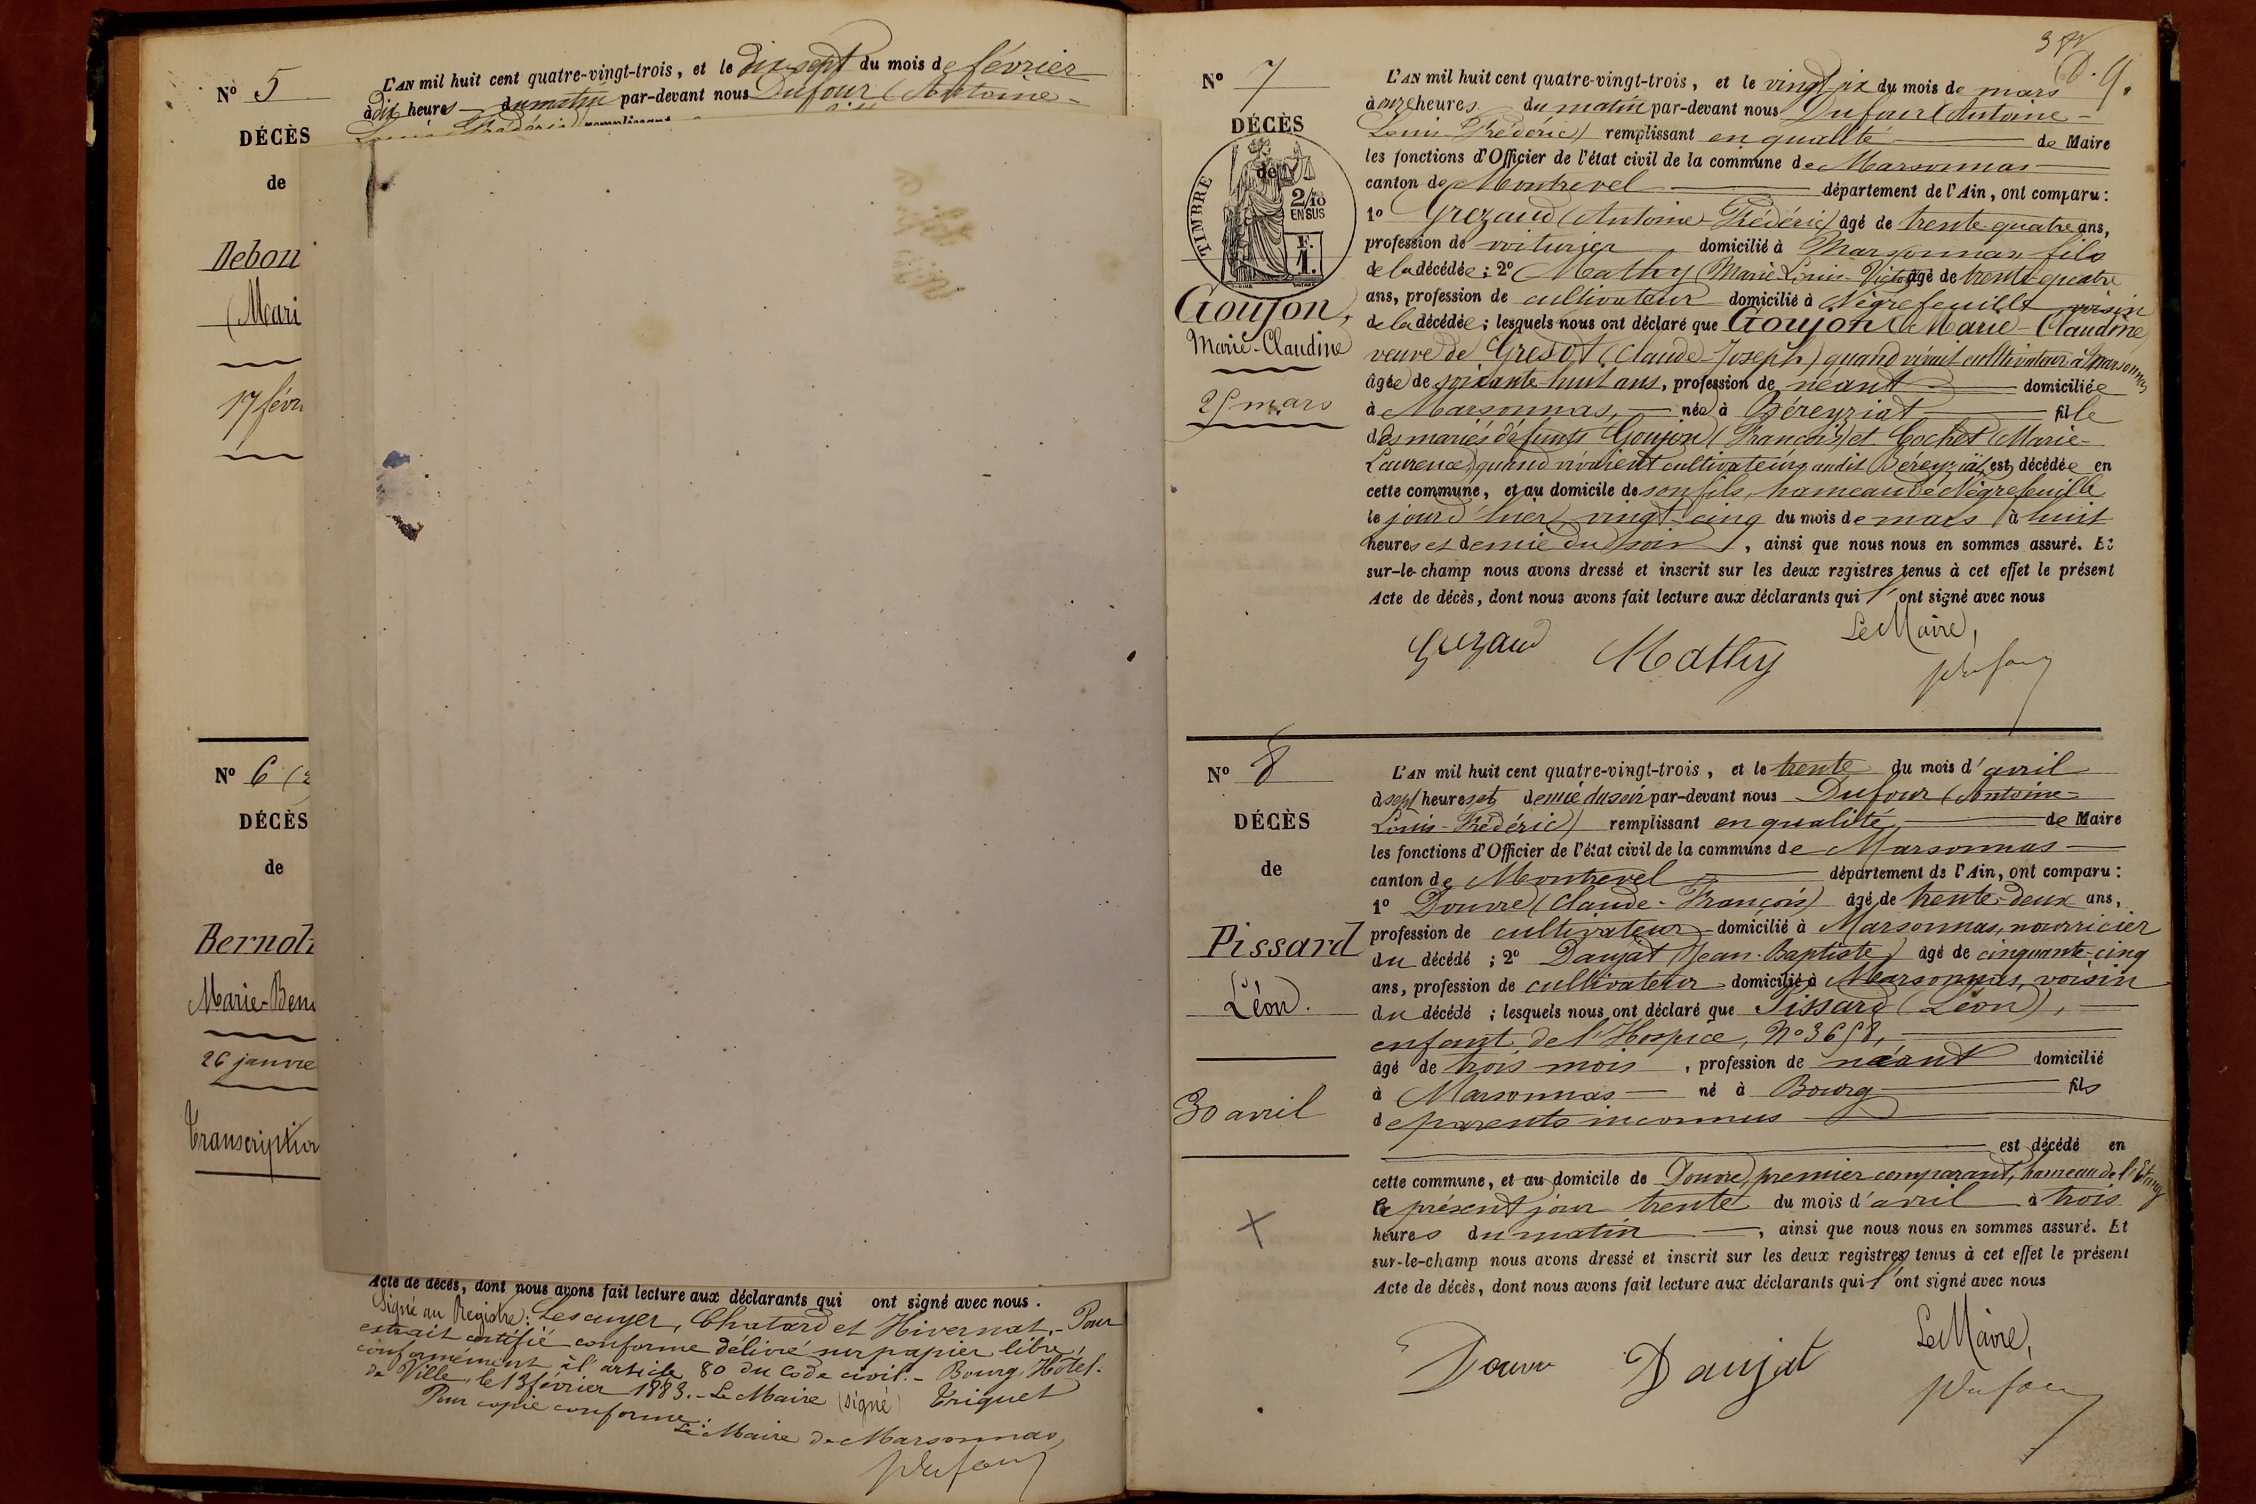 Nº 5
L'AN mil huit cent quatre-vingt-trois, et le dix-sept du mois de février
à dix heures du matin par-devant nous Dufour (Antoine-
DÉCÈS
de
Debou
(Mari
17 févr
Nº 6
DÉCÈS
de
Marie-Ben
26 janvie
Transcription
Acte de décès, dont nous avons fait lecture aux déclarants qui ont signé avec nous.
Signé au Registre: Lescuyer, Chatard et Hivernat. - Pour
extrait certifié conforme délivré sur papier libre,
conformément à l'article 80 du Code civil. - Bourg, Hôtel-
de Ville, le 13 février 1883. - Le Maire (signé) Triquet
Pour copie conforme:
Le Maire de Marsonnas,
Dufour
Nº 7
DÉCÈS
de
TIMBRE
2/10
EN SUS
1 F.
Goujon,
Marie-Claudine
25 mars
L'AN mil huit cent quatre-vingt-trois, et le vingt-six du mois de mars
à onze heures du matin par-devant nous Dufour (Antoine-
Louis-Frédéric) remplissant en qualité de Maire
les fonctions d'Officier de l'état civil de la commune de Marsonnas
canton de Montrevel département de l'Ain, ont comparu:
1º Grezaud (Antoine Frédéric) âgé de trente-quatre ans,
profession de voiturier domicilié à Marsonnas fils
de la décédée; 2º Mathy (Marie-Louis-Victor) âgé de trente-quatre
ans, profession de cultivateur domicilié à Nègrefeuille voisin
de la décédée; lesquels nous ont déclaré que Goujon (Marie-Claudine)
veuve de (Claude Joseph) quand vivait cultivateur à Marsonnas
âgée de soixante-huit ans, profession de néant domiciliée
à Marsonnas, née à Béreyziat fille
des mariés défunts Goujon (François) et Cochet (Marie-
Laurence) quand vivaient cultivateurs audit Béreyziat, est décédée en
cette commune, et au domicile de son fils, hameau de Nègrefeuille
le jour d'hier, vingt-cinq du mois de mars à huit
heures et demie du soir, ainsi que nous nous en sommes assuré. Et
sur-le-champ nous avons dressé et inscrit sur les deux registres tenus à cet effet le présent
Acte de décès, dont nous avons fait lecture aux déclarants qui l'ont signé avec nous
Le Maire,
Grezaud Mathy Dufour
Nº 8
DÉCÈS
de
Pissard
Léon.
30 avril
L'AN mil huit cent quatre-vingt-trois, et le trente du mois d'avril
à sept heures et demie du soir par-devant nous Dufour (Antoine-
Louis-Frédéric) remplissant en qualité de Maire
les fonctions d'Officier de l'état civil de la commune de Marsonnas
canton de Montrevel département de l'Ain, ont comparu:
1º Douvre (Claude-François) âgé de trente-deux ans,
profession de cultivateur domicilié à Marsonnas, nourricier
du décédé; 2º Daujat (Jean-Baptiste) âgé de cinquante-cinq
ans, profession de cultivateur domicilié à Marsonnas, voisin
du décédé; lesquels nous ont déclaré que Pissard (Léon),
enfant de l'Hospice, Nº 3658,
âgé de trois mois, profession de néant domicilié
à Marsonnas né à Bourg fils
de parents inconnus
est décédé en
cette commune, et au domicile de Douvre, premier comparant, hameau de l'Etang
le présent jour trente du mois d'avril à trois
heures du matin, ainsi que nous nous en sommes assuré. Et
sur-le-champ nous avons dressé et inscrit sur les deux registres tenus à cet effet le présent
Acte de décès, dont nous avons fait lecture aux déclarants qui l'ont signé avec nous
Le Maire,
Douvre Daujat Dufour